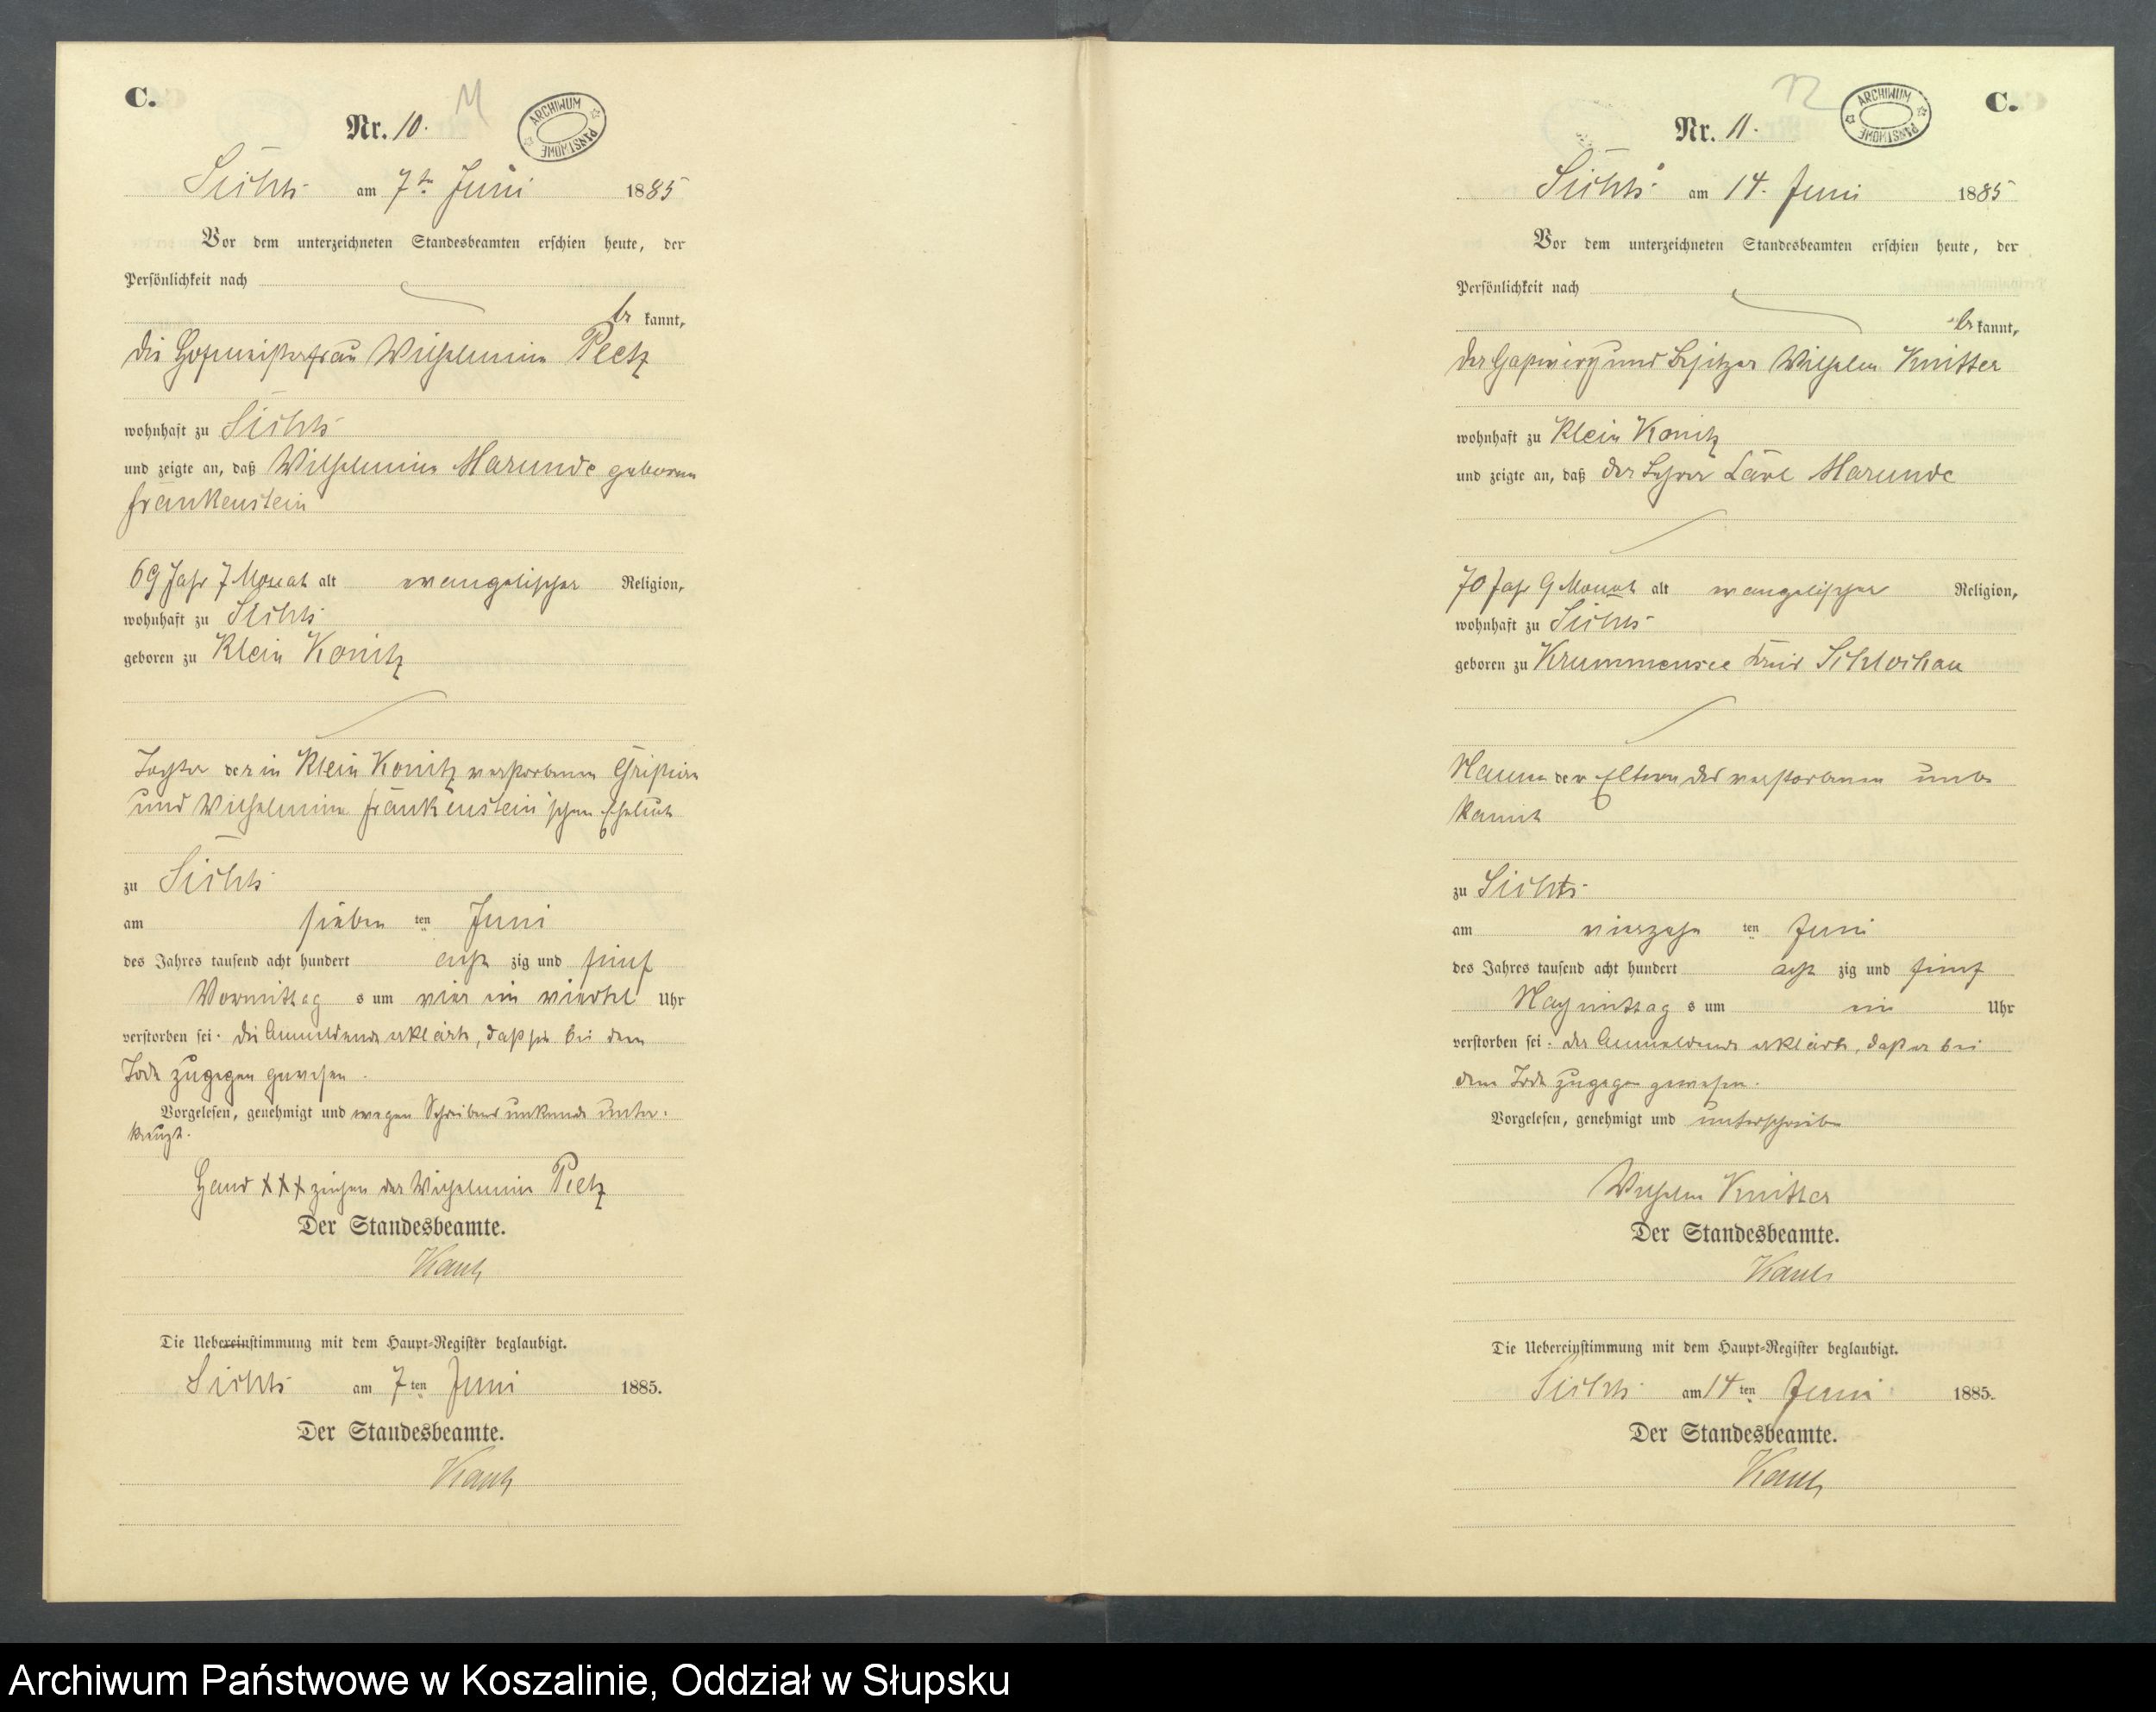 C.
Nr. 10.
11
ARCHIWUM PAŃSTWOWE
Sichts am 7ten Juni 1885
Vor dem unterzeichneten Standesbeamten erschien heute, der
Persönlichkeit nach
be kannt,
die Hofmeisterfrau Wilhelmine Peetz
wohnhaft zu Sichts
und zeigte an, daß Wilhelmine Marunde geborene
Frankenstein
69 Jahr 7 Monat alt evangelischer Religion,
wohnhaft zu Sichts
geboren zu Klein Konitz
Tochter der in Klein Konitz verstorbenen Christian
und Wilhelmine Frankenstein'schen Eheleute
zu Sichts
am sieben ten Juni
des Jahres tausend acht hundert acht zig und fünf
Vormittag s um vier ein viertel Uhr
verstorben sei. Die Anmeldende erklärte, daß sie bei dem
Tode zugegen gewesen.
Vorgelesen, genehmigt und wegen Schreibens unkunde unter-
kreuzt.
Hand XXX zeichen der Wilhelmine Peetz
Der Standesbeamte.
Die Uebereinstimmung mit dem Haupt-Register beglaubigt.
Sichts am 7 ten Juni 1885.
Der Standesbeamte.
C.
Nr. 11.
12
ARCHIWUM PAŃSTWOWE
Sichts am 14. Juni 1885
Vor dem unterzeichneten Standesbeamten erschien heute, der
Persönlichkeit nach
be kannt,
der Gastwirth und Besitzer Wilhelm Knitter
wohnhaft zu Klein Konitz
und zeigte an, daß der Lehrer Carl Marunde
70 Jahr 9 Monat alt evangelischer Religion,
wohnhaft zu Sichts
geboren zu Krummensee Kreis Schlochau
Namen der Eltern des verstorbenen unbe
kannt
zu Sichts
am vierzehn ten Juni
des Jahres tausend acht hundert acht zig und fünf
Nachmittag s um ein Uhr
verstorben sei. der Anmeldende erklärte, daß er bei
dem Tode zugegen gewesen.
Vorgelesen, genehmigt und unterschrieben
Wilhelm Knitter
Der Standesbeamte.
Die Uebereinstimmung mit dem Haupt-Register beglaubigt.
Sichts am 14 ten Juni 1885.
Der Standesbeamte.
Archiwum Państwowe w Koszalinie, Oddział w Słupsku